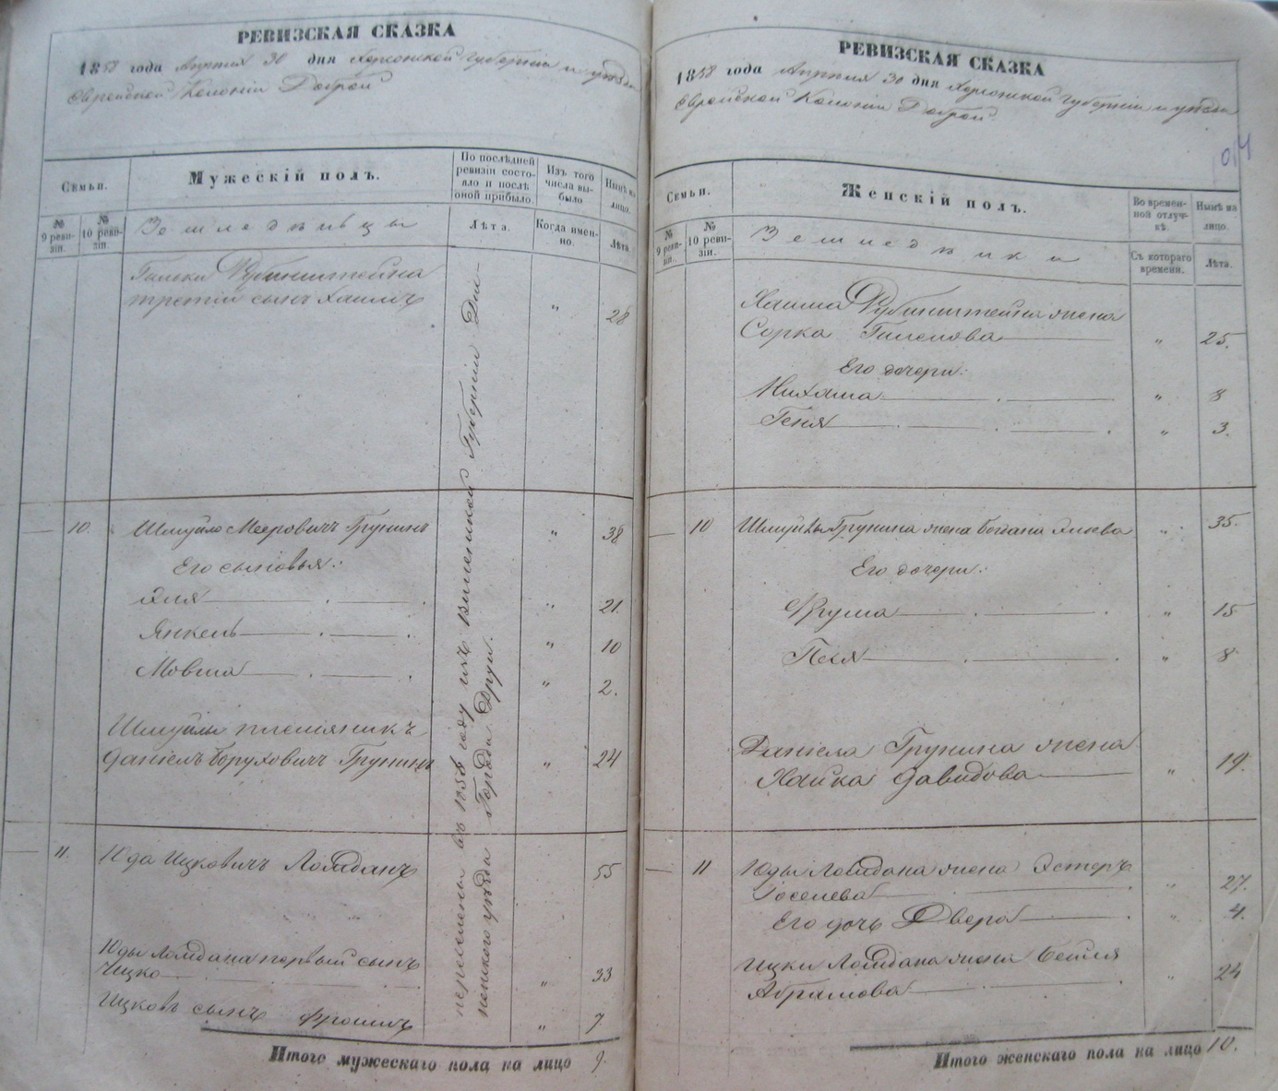 РЕВИЗСКАЯ СКАЗКА
1858 года Апреля 30 дня Херсонской губернии и уезда
Еврейской Колонии Доброй
Семьи.
Мужескій полъ.
По послѣдней ревизіи состояло и послѣ оной прибыло.
Изъ того числа выбыло
Нынѣ на лицо.
№ 9 ревизіи.
№ 10 ревизіи.
Земледѣльцы
Лѣта.
Когда именно.
Лѣта.
Рубинштейна
третій сынъ Хаимъ " 28
10. Шмуйло Мееровичъ Грунинъ " 38
Его сыновья:
Элія " 21
Янкель " 10
Мовша " 2.
Шмуйлы племянникъ
Даніелъ Боруховичъ Грунинъ " 24
11. Юда Ицковичъ Ломданъ 55
Юды Ломдана первый сынъ
Ицко " 33
Ицковъ сынъ Фроимъ " 7
переселены въ 1853 году изъ Виленской Губерніи
уѣзда Города Друи.
Итого мужескаго пола на лицо 9.
РЕВИЗСКАЯ СКАЗКА
1858 года Апреля 30 дня Херсонской губерніи и уезда
Еврейской Колоніи Доброй
014
Семьи.
Женскій полъ.
Во временной отлучкѣ.
Нынѣ на лицо.
№ 9 ревизіи.
№ 10 ревизіи.
Земледѣлки
Съ котораго времени.
Лѣта.
Хаима Рубинштейна жена
Сорка " 25.
Его дочери:
Нихама " 8
Геня " 3.
10 Шмуйлы Грунина жена " 35.
Его дочери:
Фрума " 15
Песя " 8
Даніела Грунина жена
Хайка Давидова " 19.
11 Юды Ломдана жена Эстеръ
Іоселева " 27.
Его дочь Двера " 4.
Ицки Ломдана жена Бейля
Абрамова " 24
Итого женскаго пола на лицо 10.